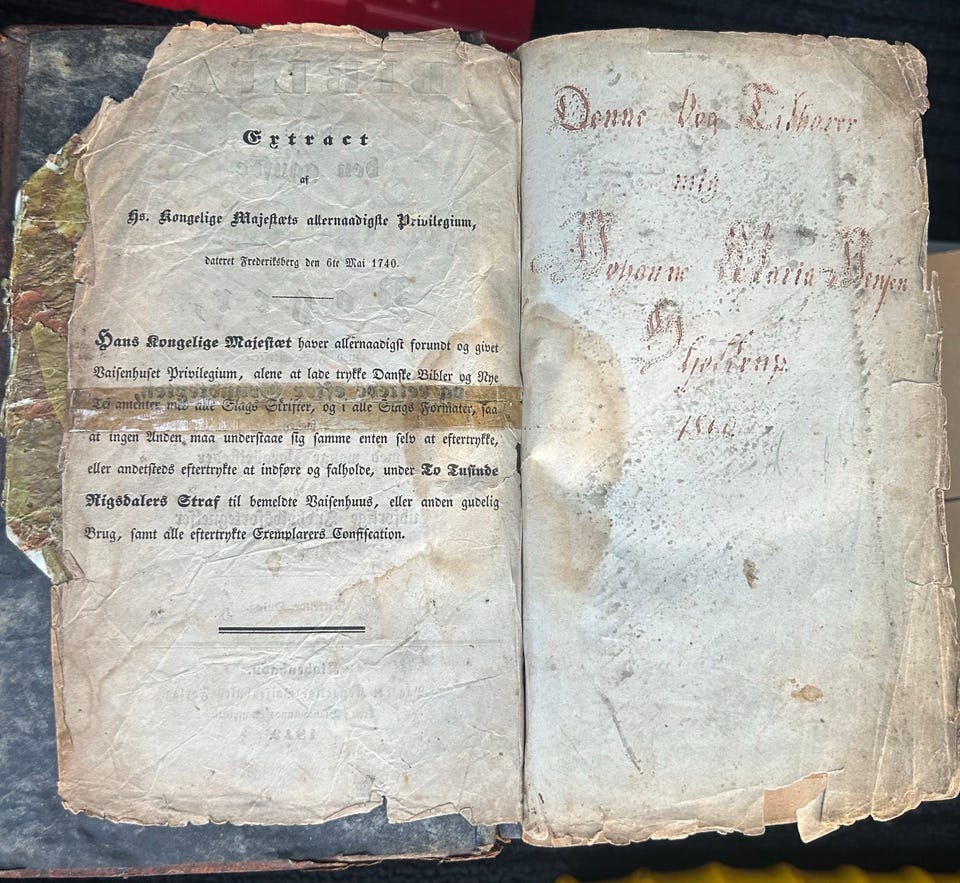 Extract
af
Hs. Kongelige Majestæts allernaadigste Privilegium,
dateret Frederiksberg den 6te Mai 1740.
Hans Kongelige Majestæt haver allernaadigst forundt og givet
Vaisenhuset Privilegium, alene at lade trykke Danske Bibler og Nye
Te amenter med alle Slags Skrifter, og i alle Slags Formater, saa
at ingen Anden maa understaae sig samme enten selv at eftertrykke,
eller andetsteds eftertrykte at indføre og falholde, under To Tusinde
Rigsdalers Straf til bemeldte Vaisenhuus, eller anden gudelig
Brug, samt alle eftertrykte Exemplarers Confiscation.
Denne Bog Tilhører
mig
Johanne Maria Jensen